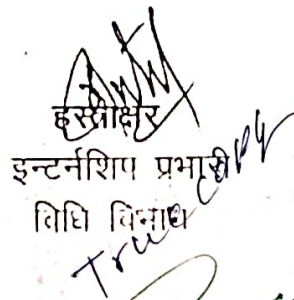 हस्ताक्षर
इन्टर्नशिप प्रभारी
विधि विभाग
True Copy